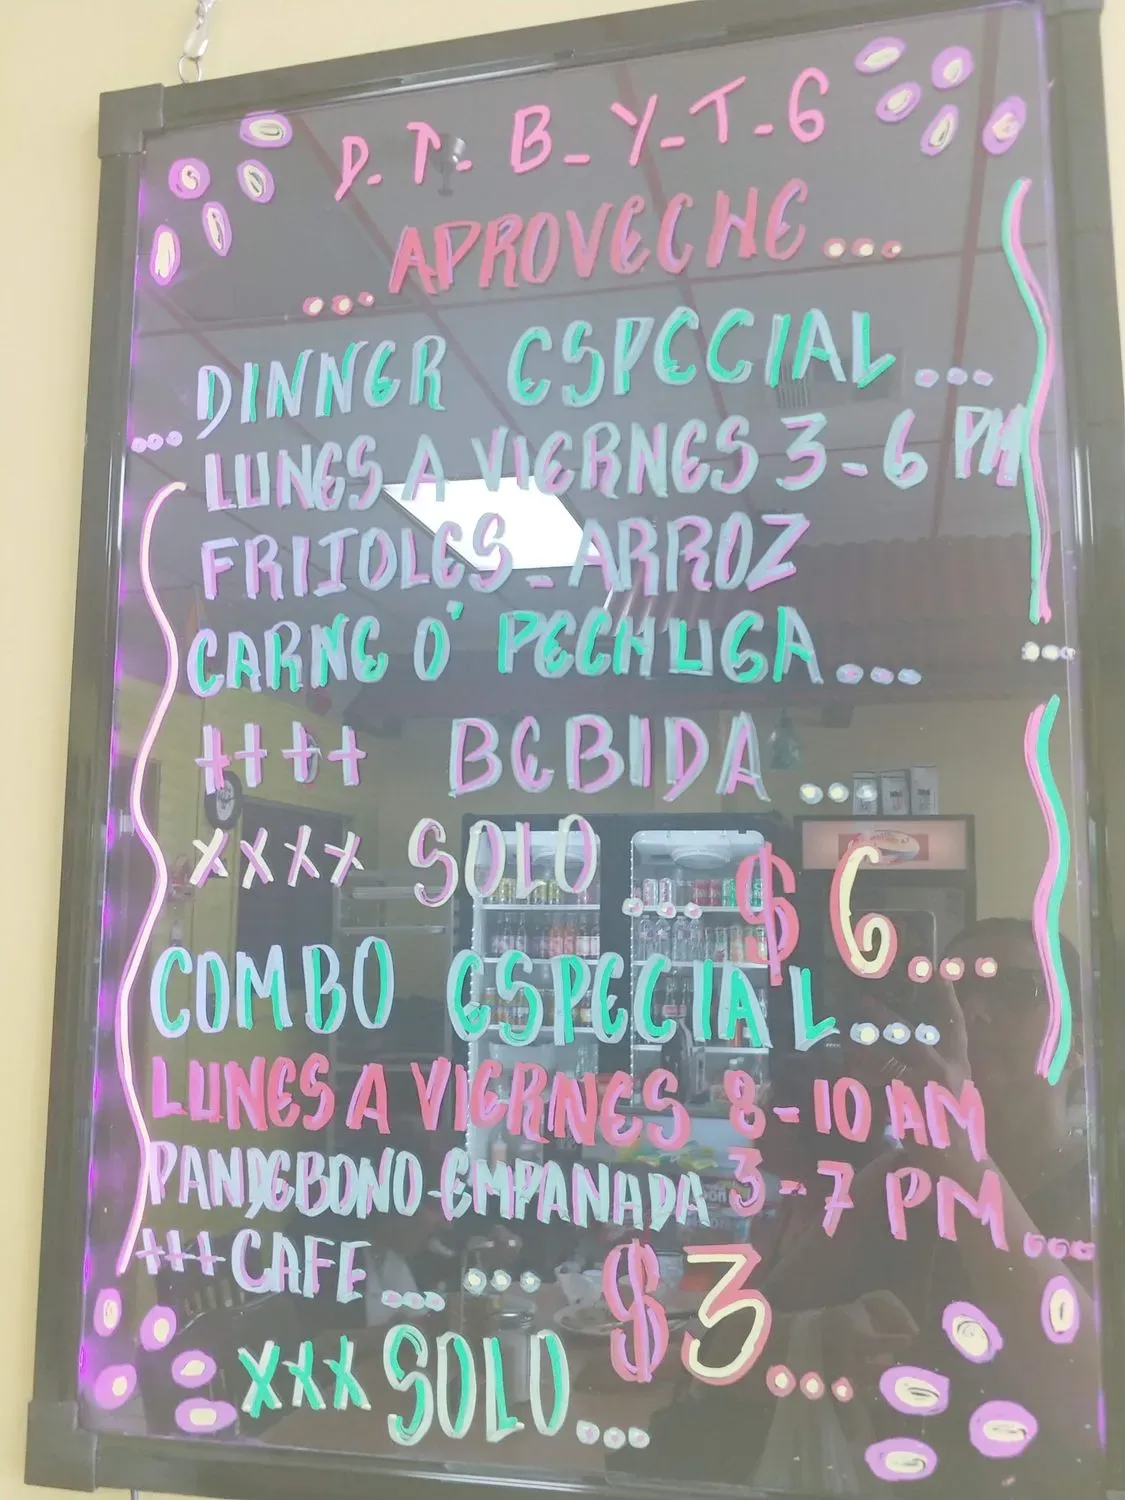 D.T.B_Y_T_G
...APROVECHE...
...DINNER ESPECIAL...
LUNES A VIERNES 3-6 PM
FRIJOLES-ARROZ
CARNE O' PECHUGA...
++++ BEBIDA...
xxxx SOLO ...$6...
COMBO ESPECIAL...
LUNES A VIERNES 8-10 AM
PANDEBONO-EMPANADA 3-7 PM...
+++CAFE... ...$3...
xxx SOLO...